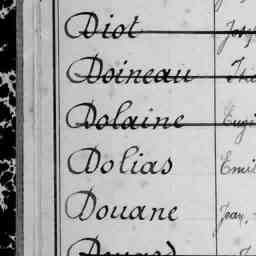 Diot
Doineau
Dolaine
Dolias Emil
Douane Jean